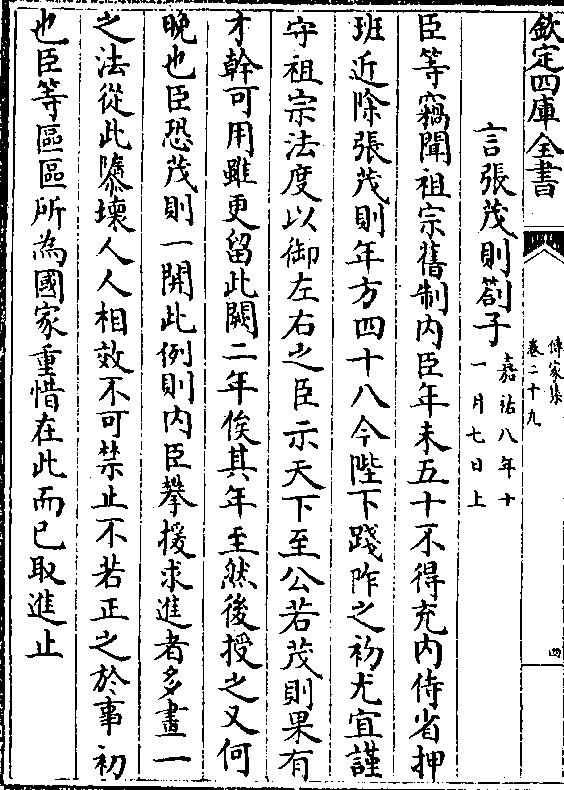 欽定四庫全書
傳家集
卷二十九
四
言張茂則劄子
嘉祐八年十
一月七日上
臣等竊聞祖宗舊制內臣年未五十不得充內侍省押
班近除張茂則年方四十八今陛下踐阼之初尤宜謹
守祖宗法度以御左右之臣示天下至公若茂則果有
才幹可用雖更留此闕二年俟其年至然後授之又何
晚也臣恐茂則一開此例則內臣攀援求進者多畫一
之法從此隳壞人人相效不可禁止不若正之於事初
也臣等區區所為國家重惜在此而已取進止